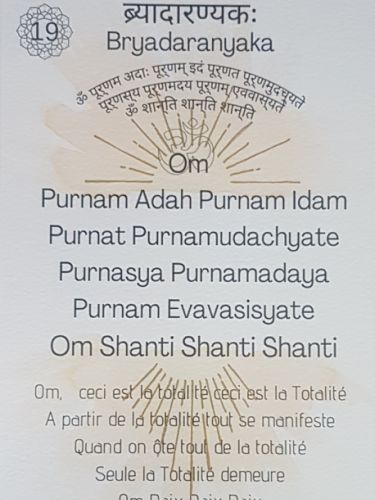 19
ब्र्यादारण्यकः
Bryadaranyaka
ॐ पूर्‌णम अदाः पूर्‌णम् इदं पूर्‌णत पूर्‌णमुदच्‌यते
पूर्‌णस्‌य पूर्‌णमदय पूर्‌णम् एववास्‌यते
ॐ शान्‌ति शान्‌ति शान्‌ति
Om
Purnam Adah Purnam Idam
Purnat Purnamudachyate
Purnasya Purnamadaya
Purnam Evavasisyate
Om Shanti Shanti Shanti
Om, ceci est la totalité ceci est la Totalité
A partir de la totalité tout se manifeste
Quand on ôte tout de la totalité
Seule la Totalité demeure
Om Paix Paix Paix